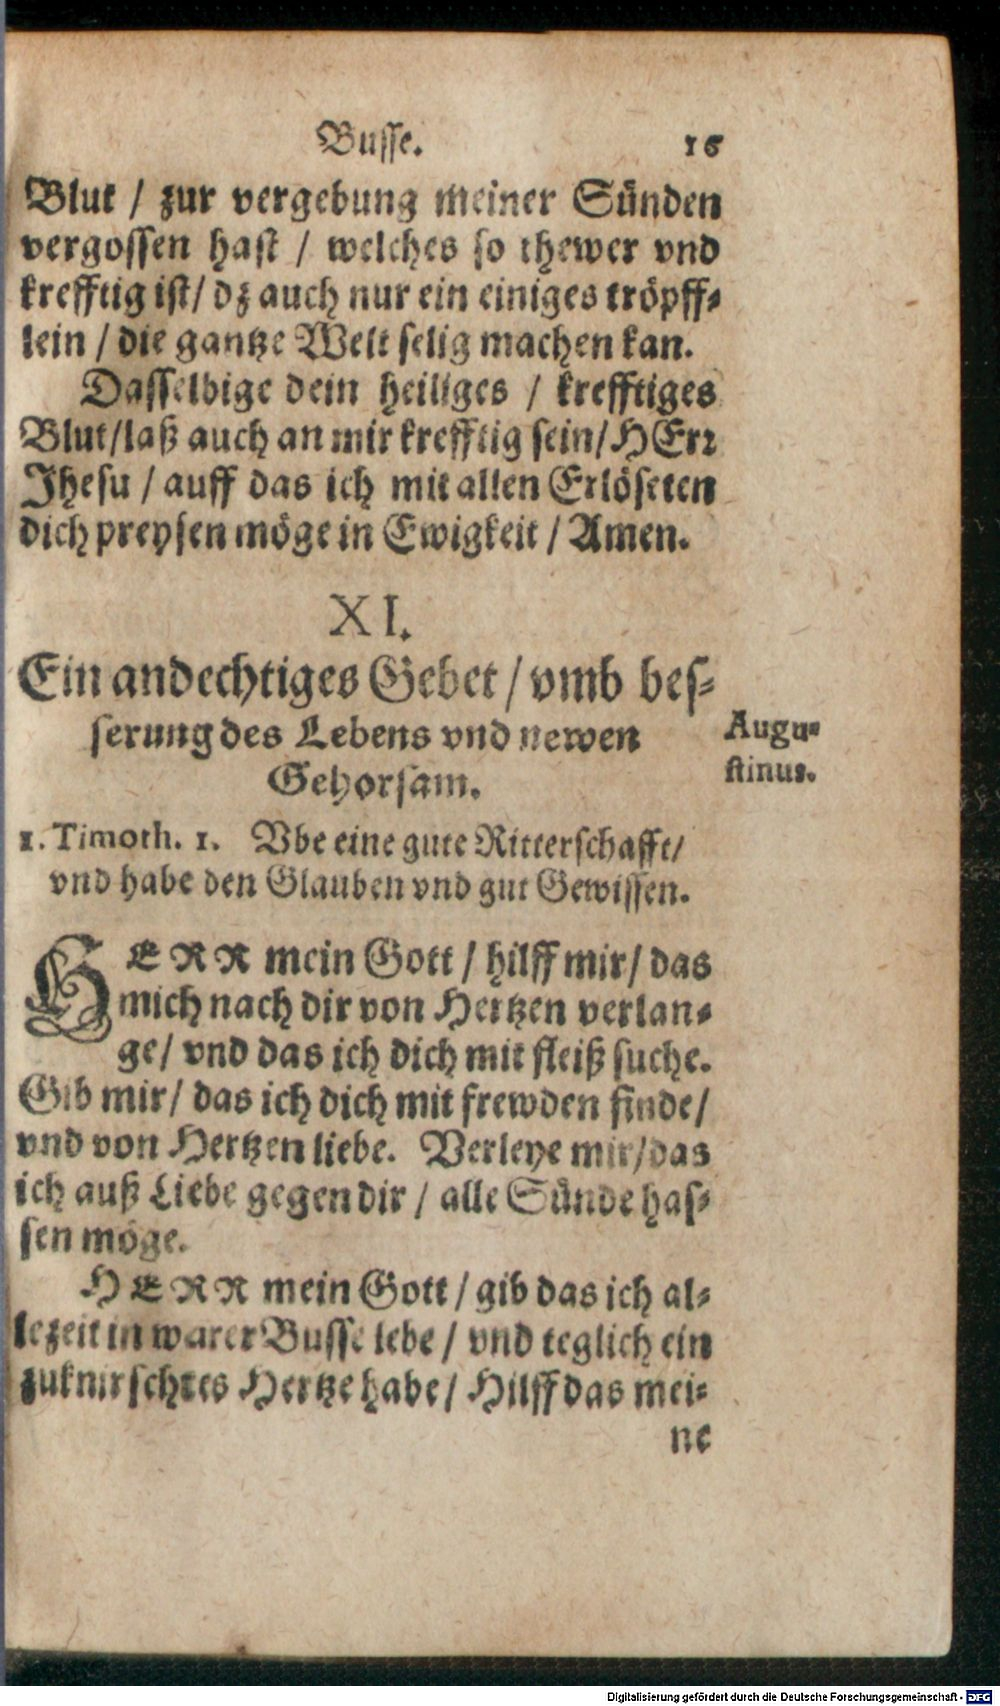 Busse. 16
Blut / zur vergebung meiner Sünden
vergossen hast / welches so thewer vnd
krefftig ist/ dz auch nur ein einiges tröpff-
lein / die gantze Welt selig machen kan.
Dasselbige dein heiliges / krefftiges
Blut/laß auch an mir krefftig sein/HErr
Jhesu / auff das ich mit allen Erlöseten
dich preysen möge in Ewigkeit / Amen.
XI.
Ein andechtiges Gebet / vmb bes-
serung des Lebens vnd newen
Gehorsam.
Augu-
stinus.
1. Timoth. 1. Vbe eine gute Ritterschafft/
vnd habe den Glauben vnd gut Gewissen.
HERR mein Gott / hilff mir/ das
mich nach dir von Hertzen verlan-
ge/ vnd das ich dich mit fleiß suche.
Gib mir/ das ich dich mit frewden finde/
vnd von Hertzen liebe. Verleye mir/das
ich auß Liebe gegen dir / alle Sünde has-
sen möge.
HERR mein Gott / gib das ich al-
lezeit in warer Busse lebe / vnd teglich ein
zuknirschtes Hertze habe/ Hilff das mei-
ne
Digitalisierung gefördert durch die Deutsche Forschungsgemeinschaft - DFG